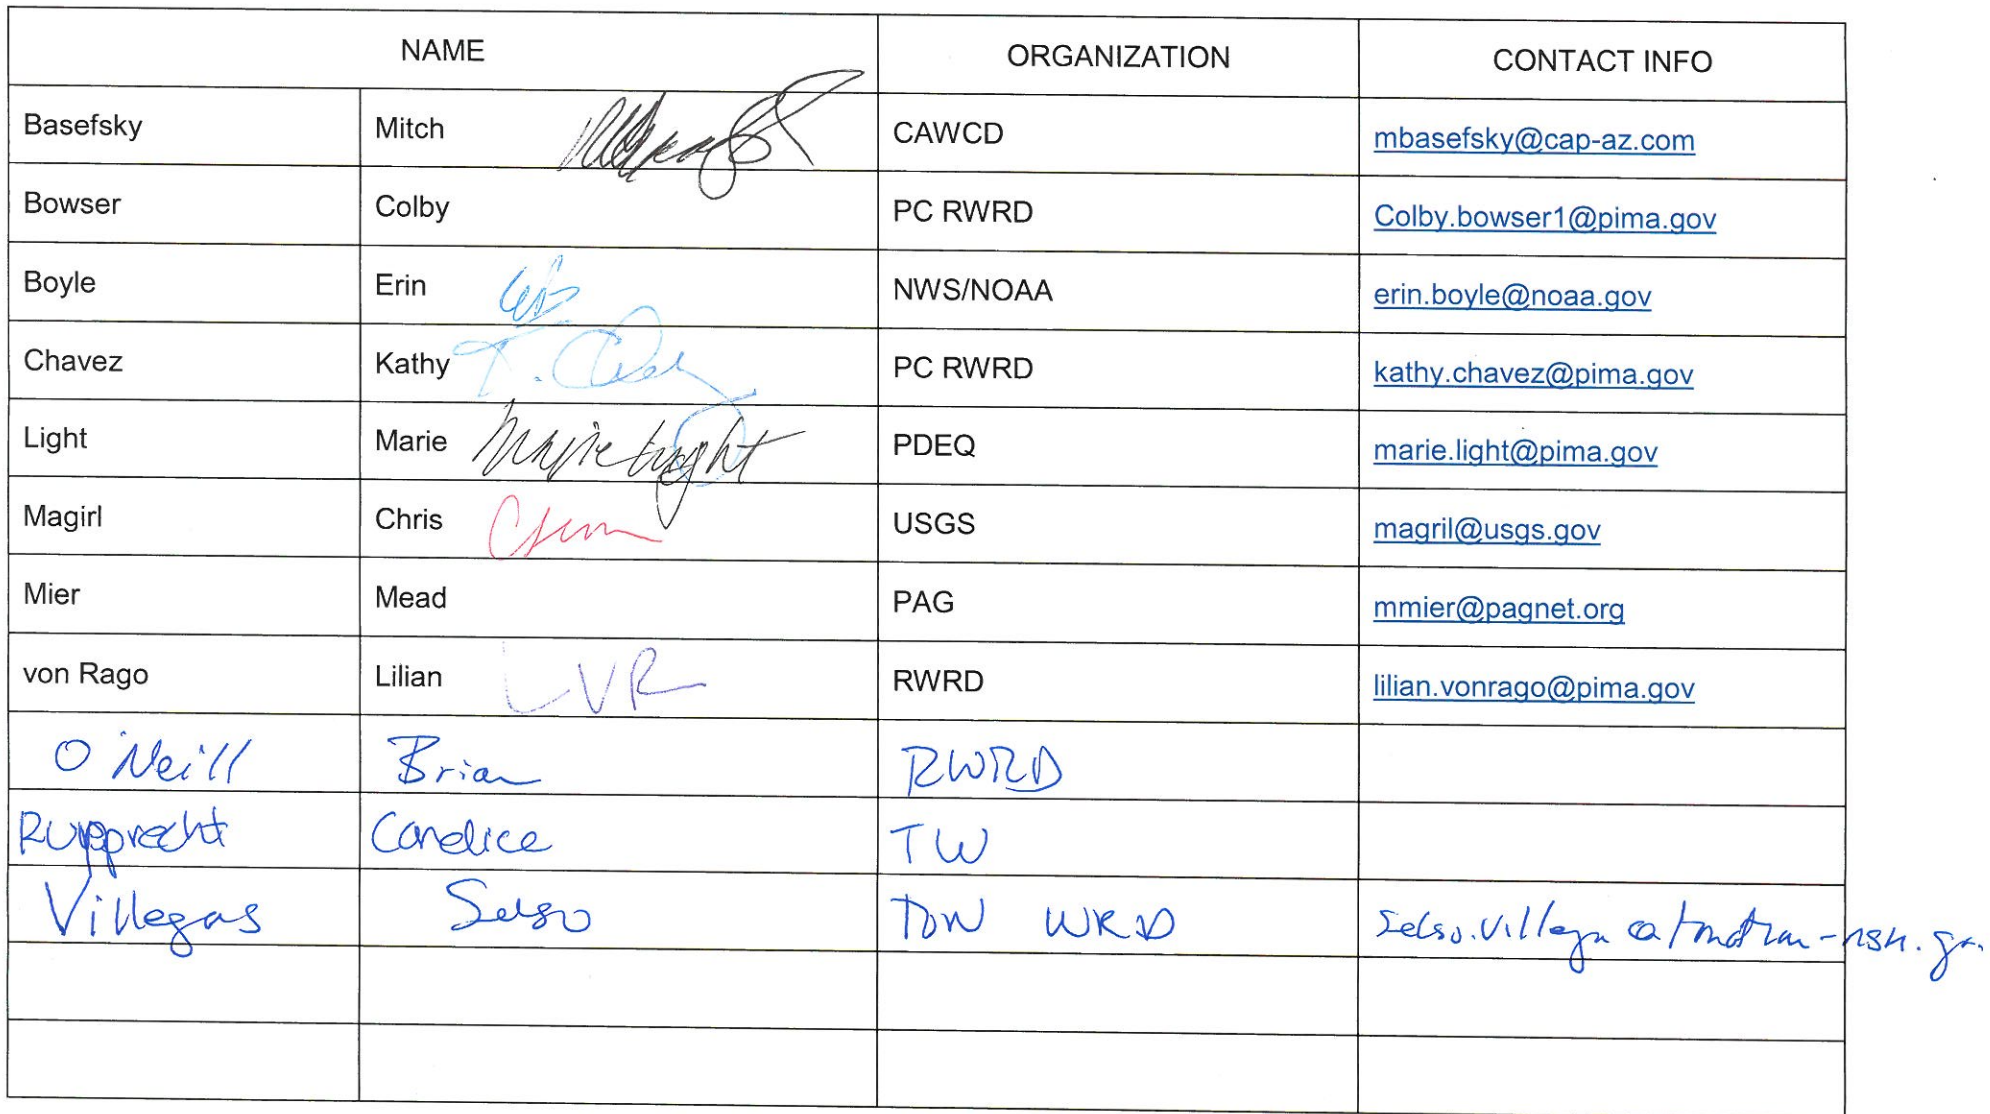 NAME ORGANIZATION CONTACT INFO
Basefsky Mitch CAWCD mbasefsky@cap-az.com
Bowser Colby PC RWRD Colby.bowser1@pima.gov
Boyle Erin NWS/NOAA erin.boyle@noaa.gov
Chavez Kathy PC RWRD kathy.chavez@pima.gov
Light Marie Marie Light PDEQ marie.light@pima.gov
Magirl Chris USGS magril@usgs.gov
Mier Mead PAG mmier@pagnet.org
von Rago Lilian LVR RWRD lilian.vonrago@pima.gov
O'Neill Brian RWRD
Rupprecht Candice TW
Villegas Selso TON WRD